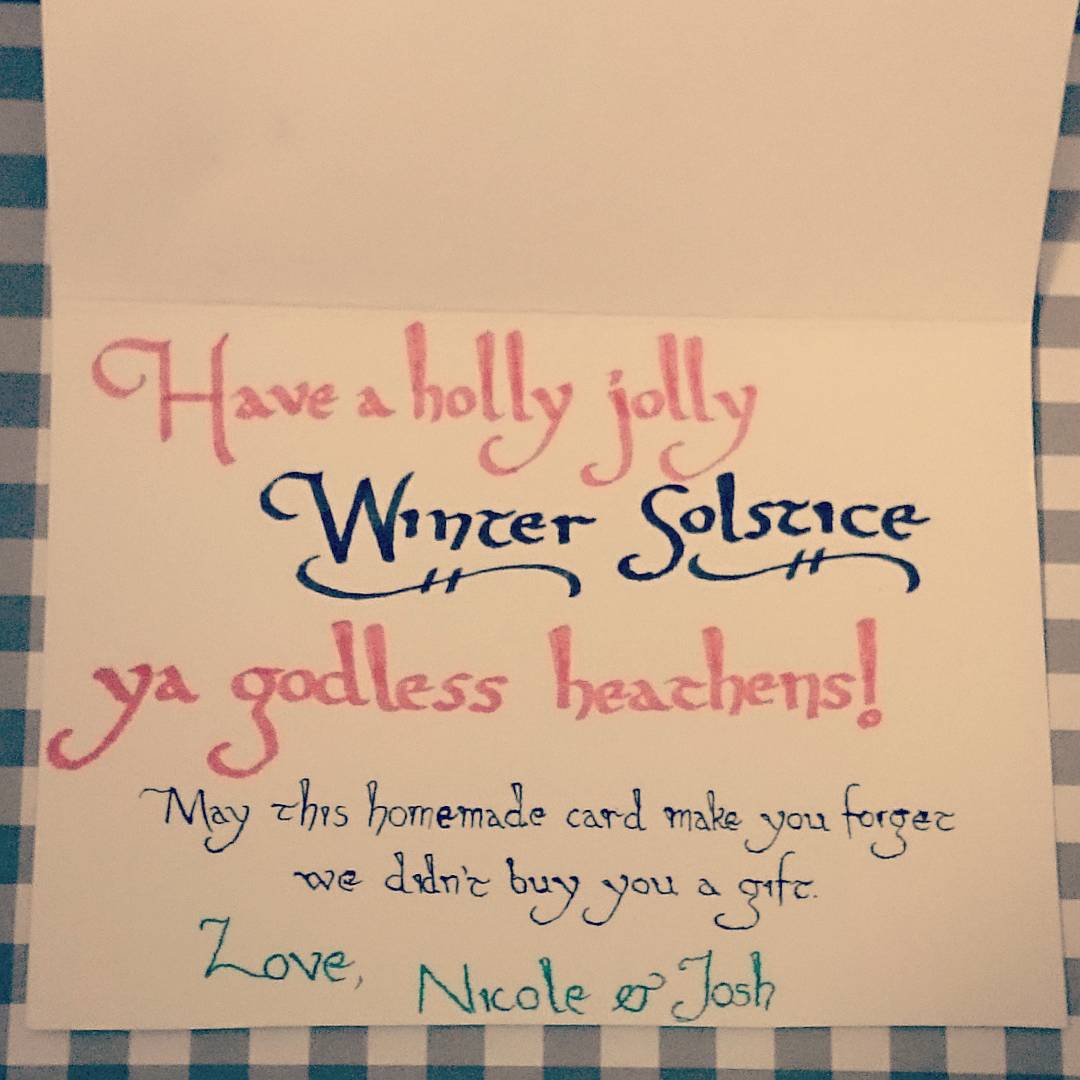 Have a holly jolly
Winter Solstice
ya godless heathens!
May this homemade card make you forget
we didn't buy you a gift.
Love, Nicole & Josh